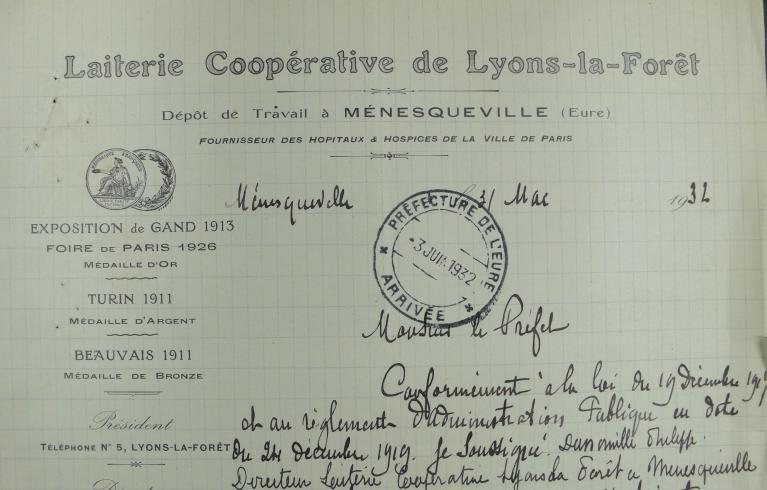 Laiterie Coopérative de Lyons-la-Forêt
Dépôt de Travail à MÉNESQUEVILLE (Eure)
FOURNISSEUR DES HOPITAUX & HOSPICES DE LA VILLE DE PARIS
Ménesqueville 31 Mai 1932
PRÉFECTURE DE L'EURE
3 JUIN 1932
ARRIVÉE
EXPOSITION DE GAND 1913
FOIRE DE PARIS 1926
MÉDAILLE D'OR
TURIN 1911
MÉDAILLE D'ARGENT
BEAUVAIS 1911
MÉDAILLE DE BRONZE
Président
TÉLÉPHONE N° 5, LYONS-LA-FORÊT
Monsieur le Préfet
Conformément à la loi du 19 Décembre
et au règlement D'administration Publique en date
Du 24 décembre 1919. Je Soussigné Philippe
Directeur Laiterie Coopérative Lyons la Forêt a Menesqueville